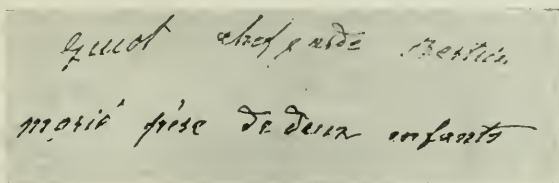 chef garde
marié père de deux enfants